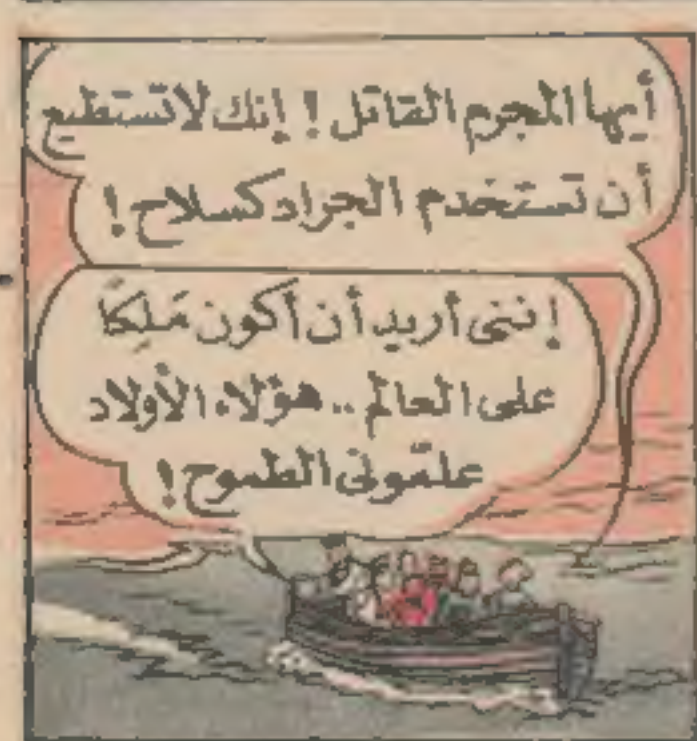 أيها المجرم القاتل ! إنك لاتستطيع
أن تستخدم الجراد كسلاح !
إننى أريد أن أكون مَلِكًا
على العالم .. هؤلاء الأولاد
علّمونى الطموح !